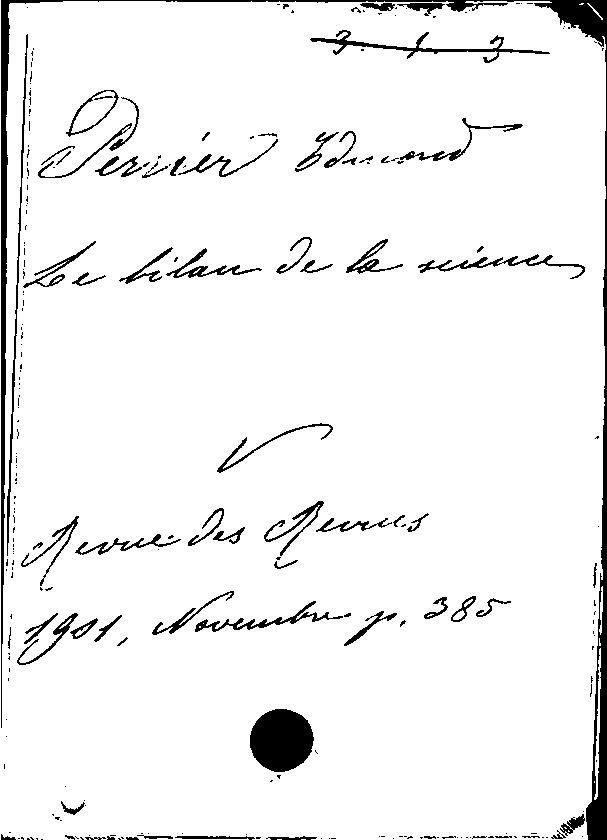 3. 1. 3
Perrier Edmond
Le bilan de la science
Revue des Revues
1901, Novembre p. 385